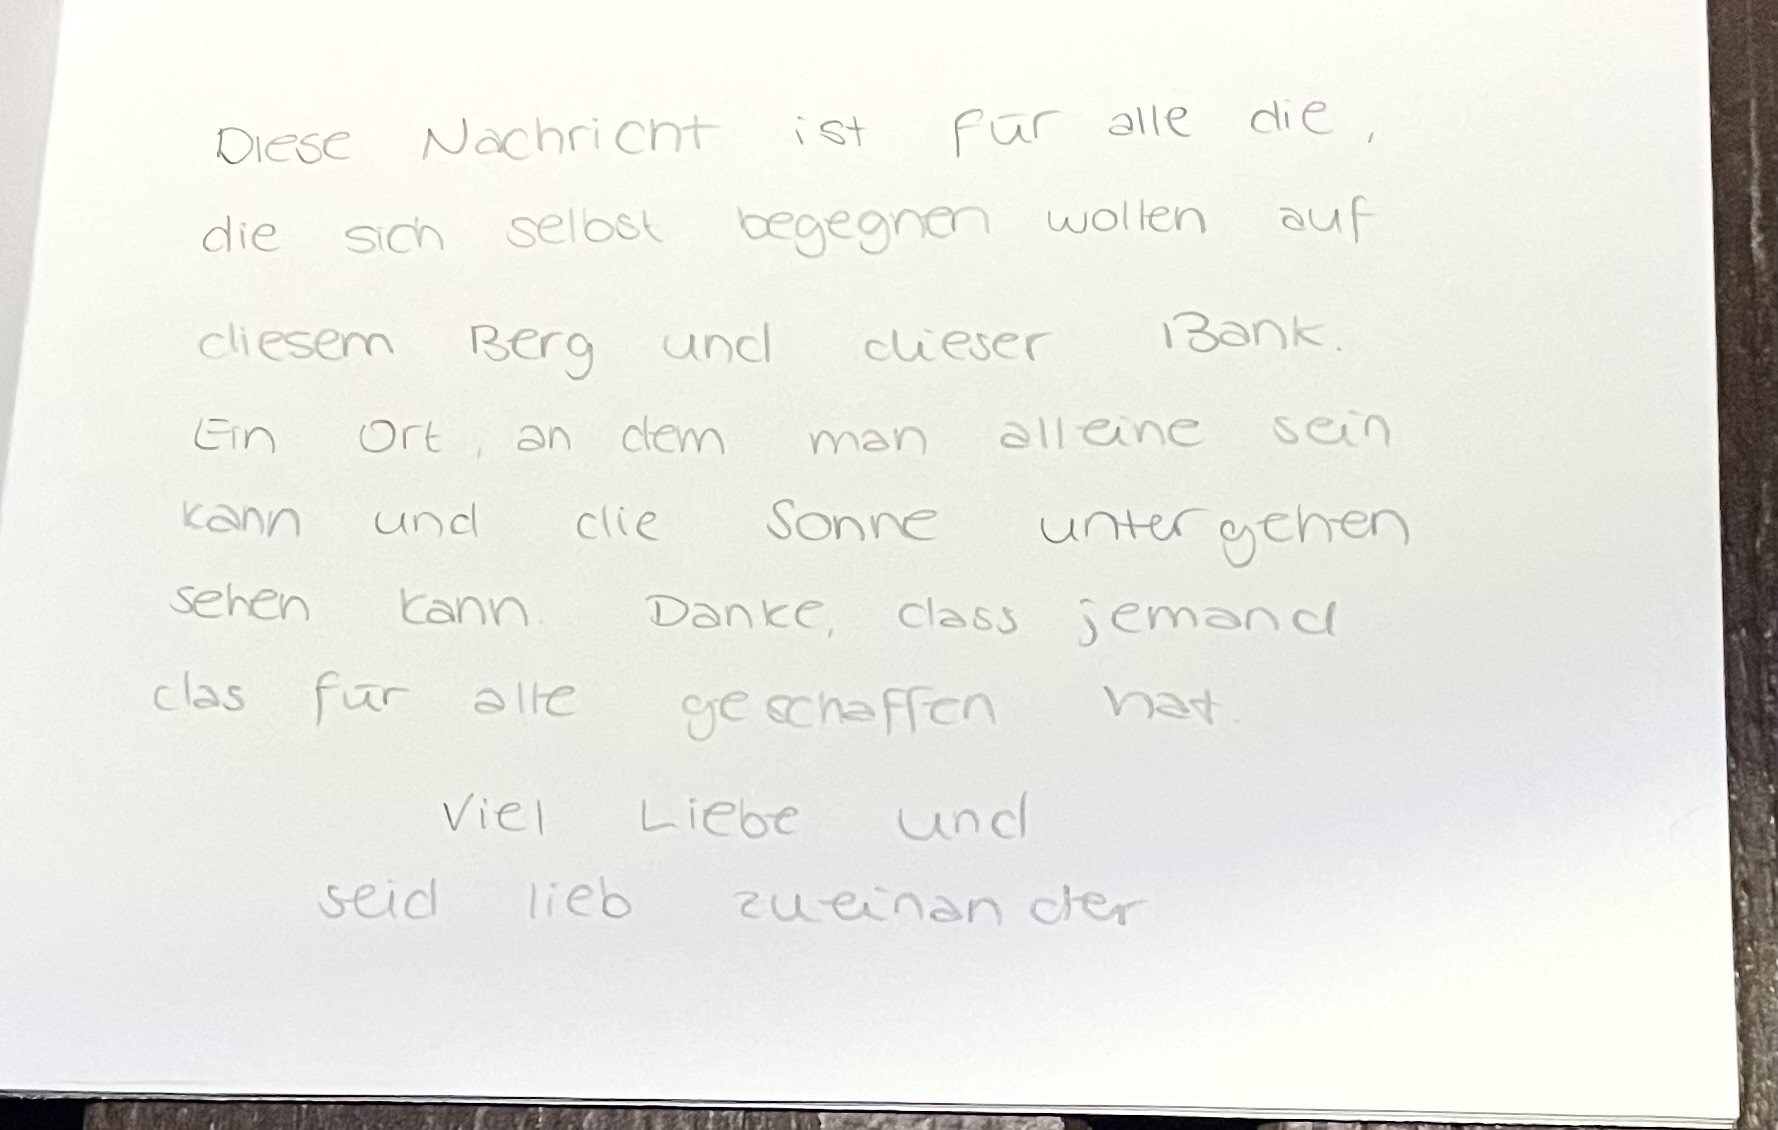 Diese Nachricht ist für alle die,
die sich selbst begegnen wollen auf
diesem Berg und dieser Bank.
Ein Ort, an dem man alleine sein
kann und die Sonne untergehen
sehen kann. Danke, dass jemand
das für alle geschaffen hat.
Viel Liebe und
seid lieb zueinander